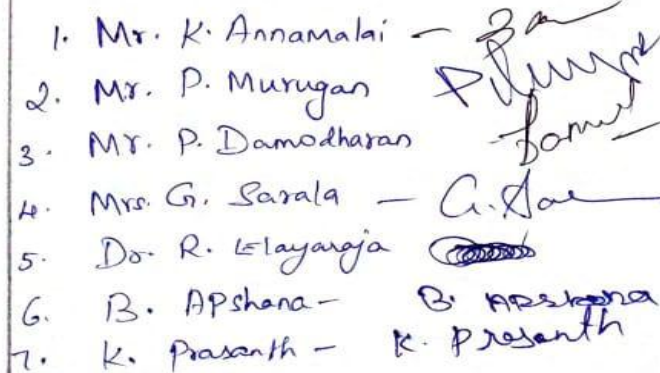 1. Mr. K. Annamalai -
2. Mr. P. Murugan
3. Mr. P. Damodharan
4. Mrs. G. Sarala - G. Sar
5. Dr. R. Elayaraja
6. B. APshana - B. APshana
7. K. Prasanth - K. Prasanth